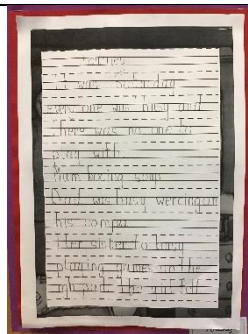 It was Saturday
everyone was busy and
there was no one to
play with.
Mum boxing soup
Dad was busy wercing on
his
Her sister to busy
playing games on the
the